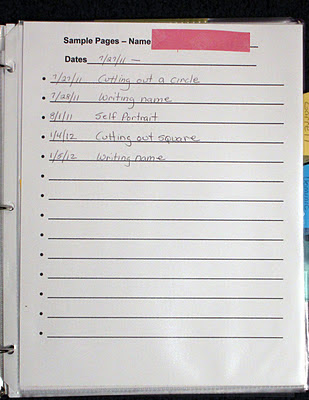 Sample Pages – Name
Dates 7/27/11 —
• 7/27/11 Cutting out a circle
• 7/28/11 Writing name
• 8/1/11 Self Portrait
• 1/4/12 Cutting out square
• 1/5/12 Writing name